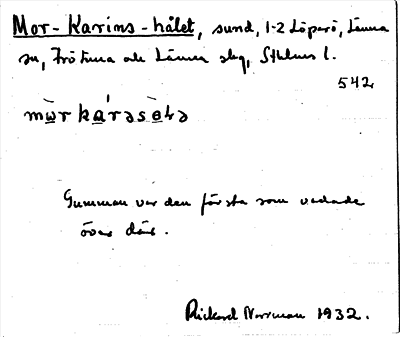 Mor-Karins-hålet, sund, 1-2 Löparö, Länna
sn, Frötuna och Länna skg, Sthlms l.
542
mωr kárəsωlə
Gumman var den första som vadade
över där.
Rickard Norrman 1932.